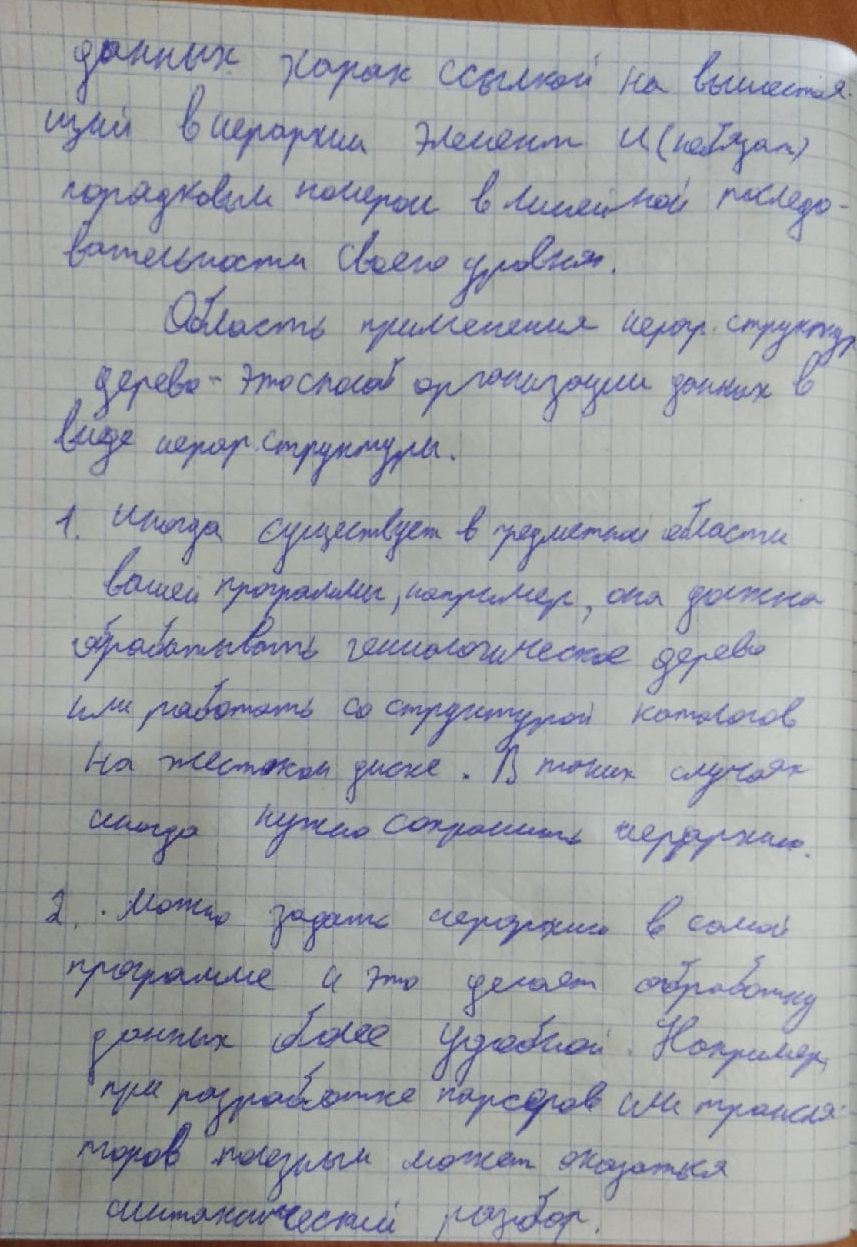 данных харак ссылкой на вышестоя-
щий в иерархии элемент и (необязат)
порядковым номером в линейной последо-
вательности своего уровня.
Область применения иерар. структур
дерево - это способ организации данных в
виде иерар. структуры.
1. Иногда существует в предметной области
вашей программы, например, она должна
обрабатывать генеологическое дерево
или работать со структурой каталогов
на жестком диске. В таких случаях
иногда нужно сохранить иерархию.
2. Можно задать иерархию в самой
программе и это делает обработку
данных более удобной. Например,
при разработке парсеров или трансля-
торов полезным может оказаться
синтаксический разбор.